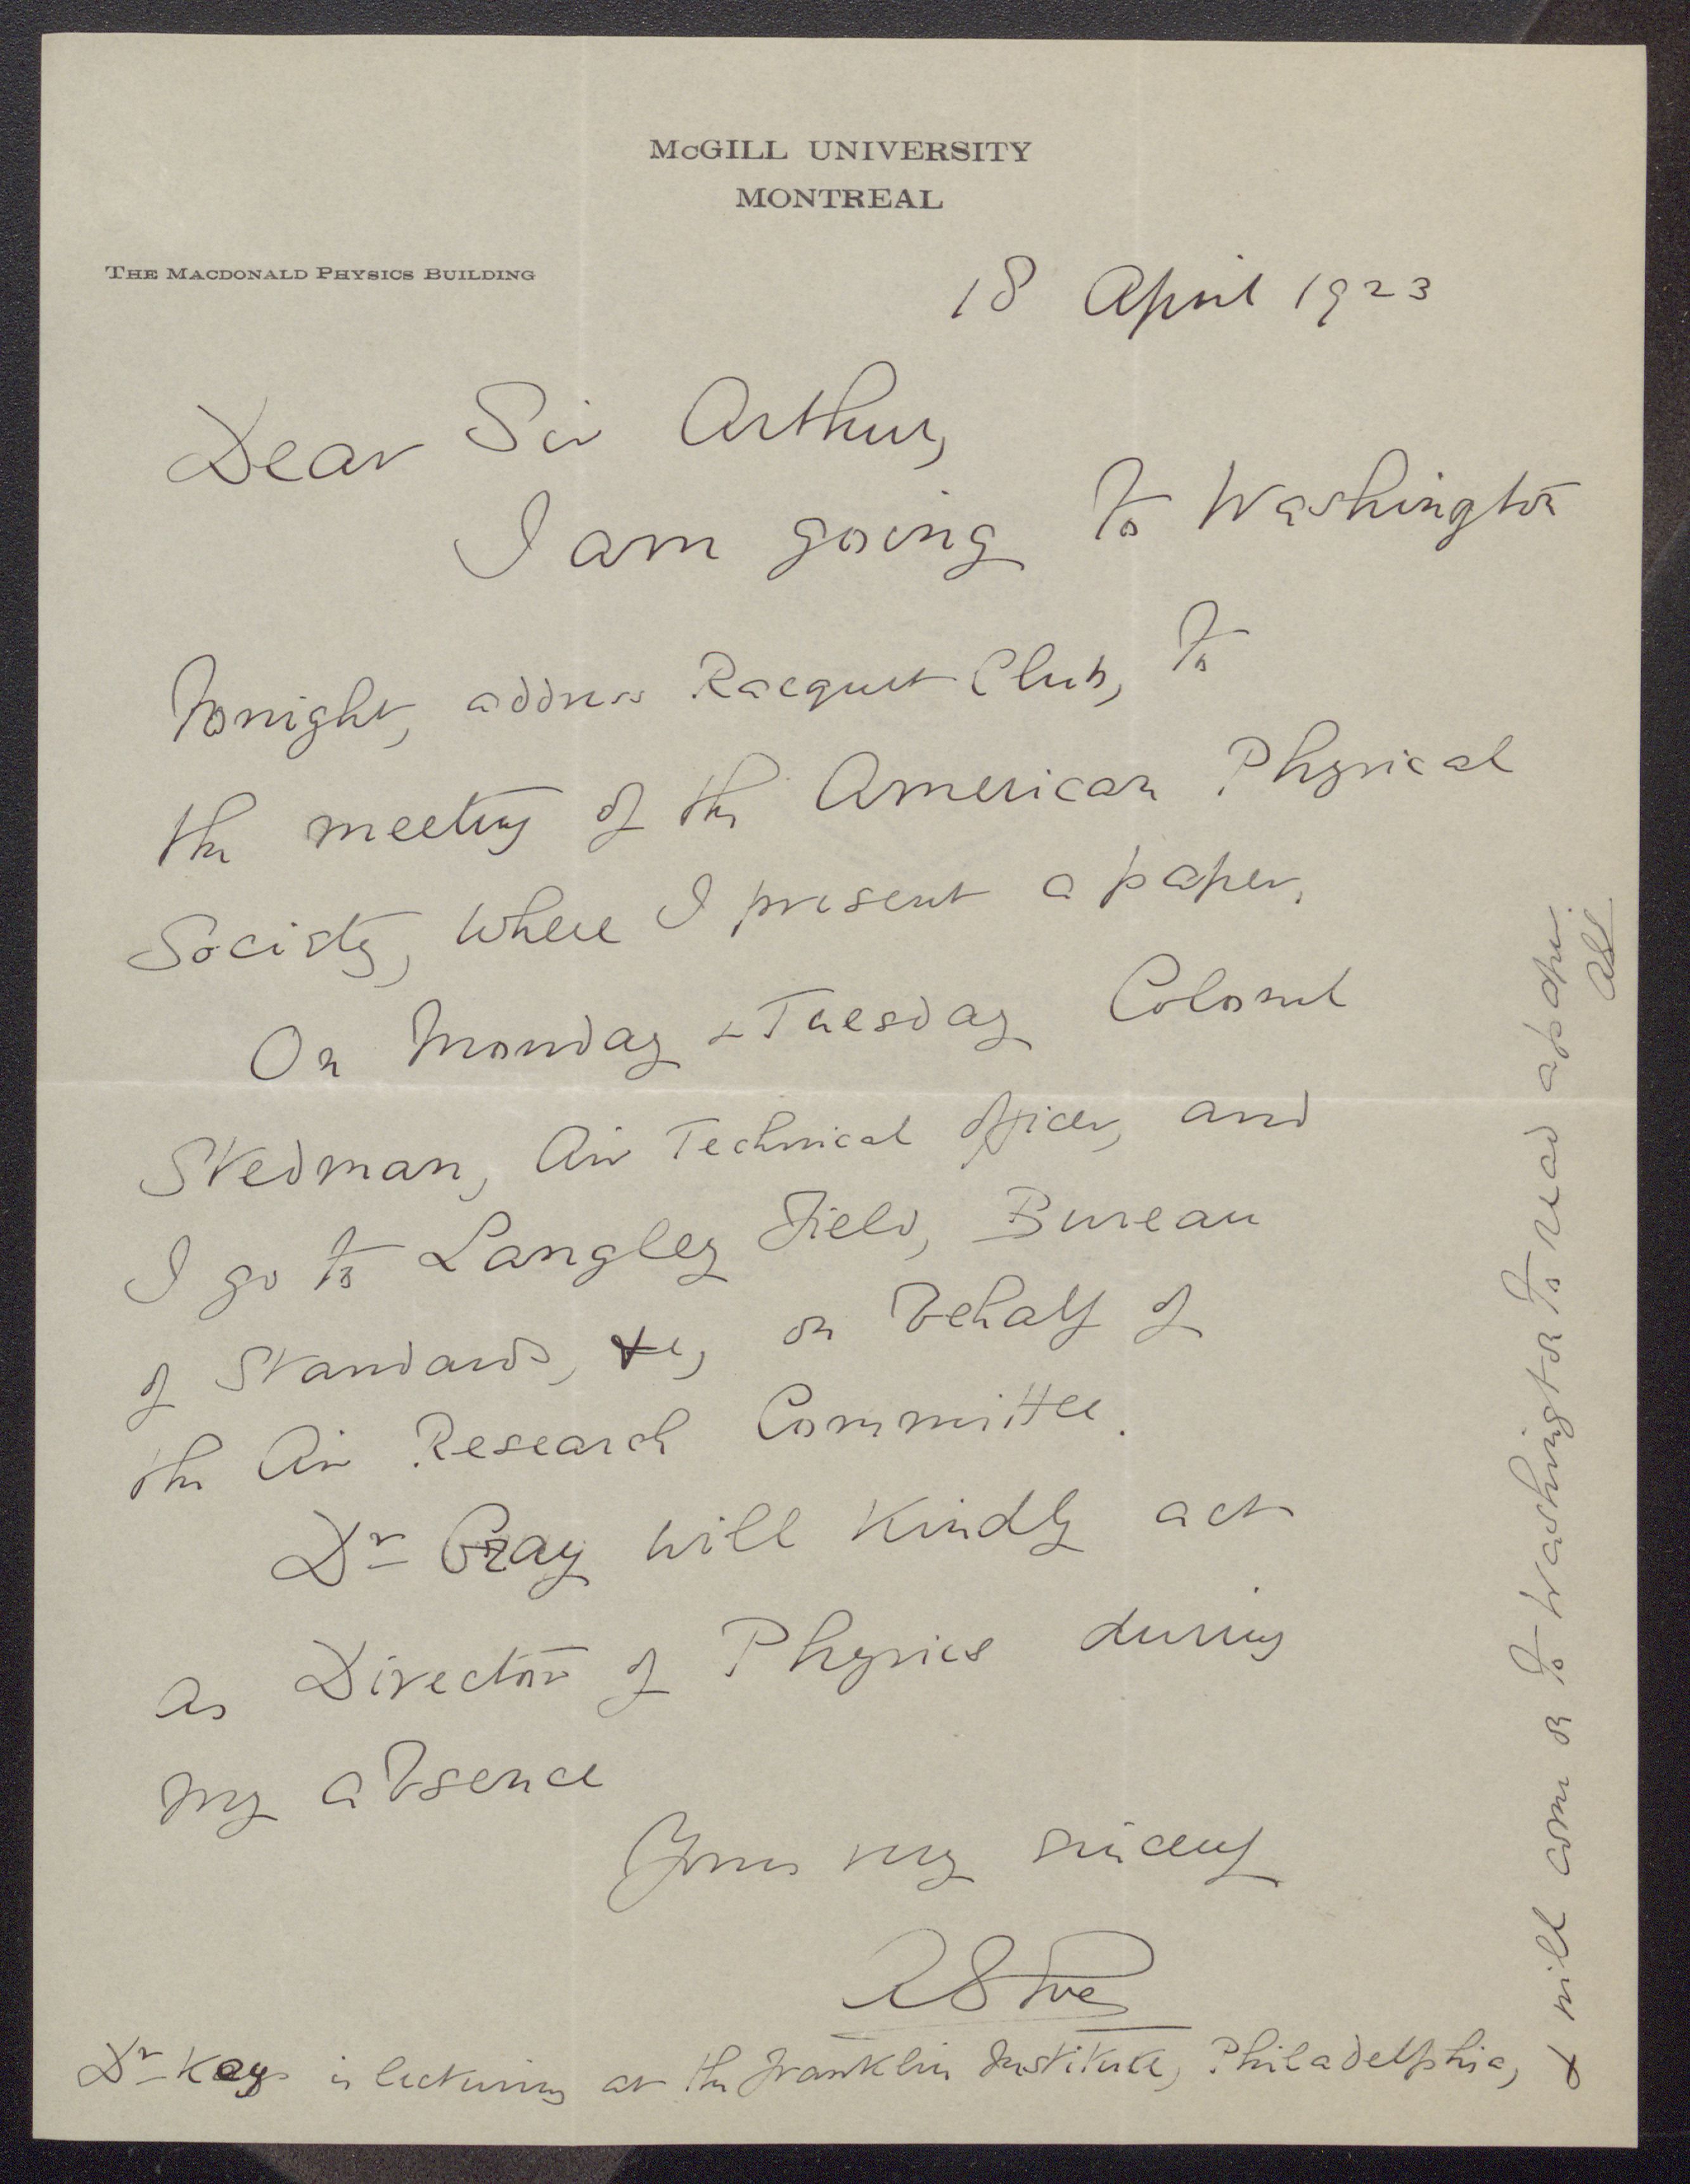 McGILL UNIVERSITY
MONTREAL
THE MACDONALD PHYSICS BUILDING
18 April 1923
Dear Sir Arthur,
I am going to Washington
tonight, address Racquet Club, to
the meeting of the American Physical
Society, where I present a paper.
On Monday & Tuesday Colonel
Stedman, Air Technical Officer, and
I go to Langley Field, Bureau
of Standards, &c, on behalf of
the Air Research Committee.
Dr Gray will kindly act
as Director of Physics during
my absence
Yours very sincerely
A S Eve
Dr Keys is lecturing at the Franklin Institute, Philadelphia,
& will come on to Washington to read a paper.
ASE